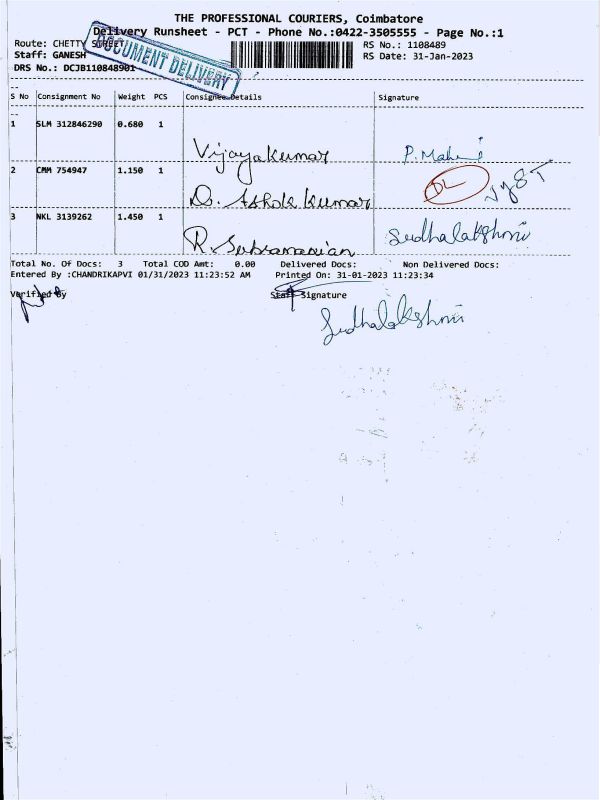 THE PROFESSIONAL COURIERS, Coimbatore
Delivery Runsheet - PCT - Phone No.:0422-3505555 - Page No.:1
Route: CHETTY STREET
RS No.: 1108489
Staff: GANESH
RS Date: 31-Jan-2023
DRS No.: DCJB110848901
DOCUMENT DELIVERY
S No Consignment No Weight PCS Consignee Details Signature
1 SLM 312846290 0.680 1
Vijayakumar P. Mahe
2 CMM 754947 1.150 1
D. Ashok kumar DL
3 NKL 3139262 1.450 1
R. Subramanian Sudhalakshmi
Total No. OF Docs: 3 Total COD Amt: 0.00 Delivered Docs: Non Delivered Docs:
Entered By :CHANDRIKAPVI 01/31/2023 11:23:52 AM Printed On: 31-01-2023 11:23:34
Verified By Staff Signature
Sudhalakshmi